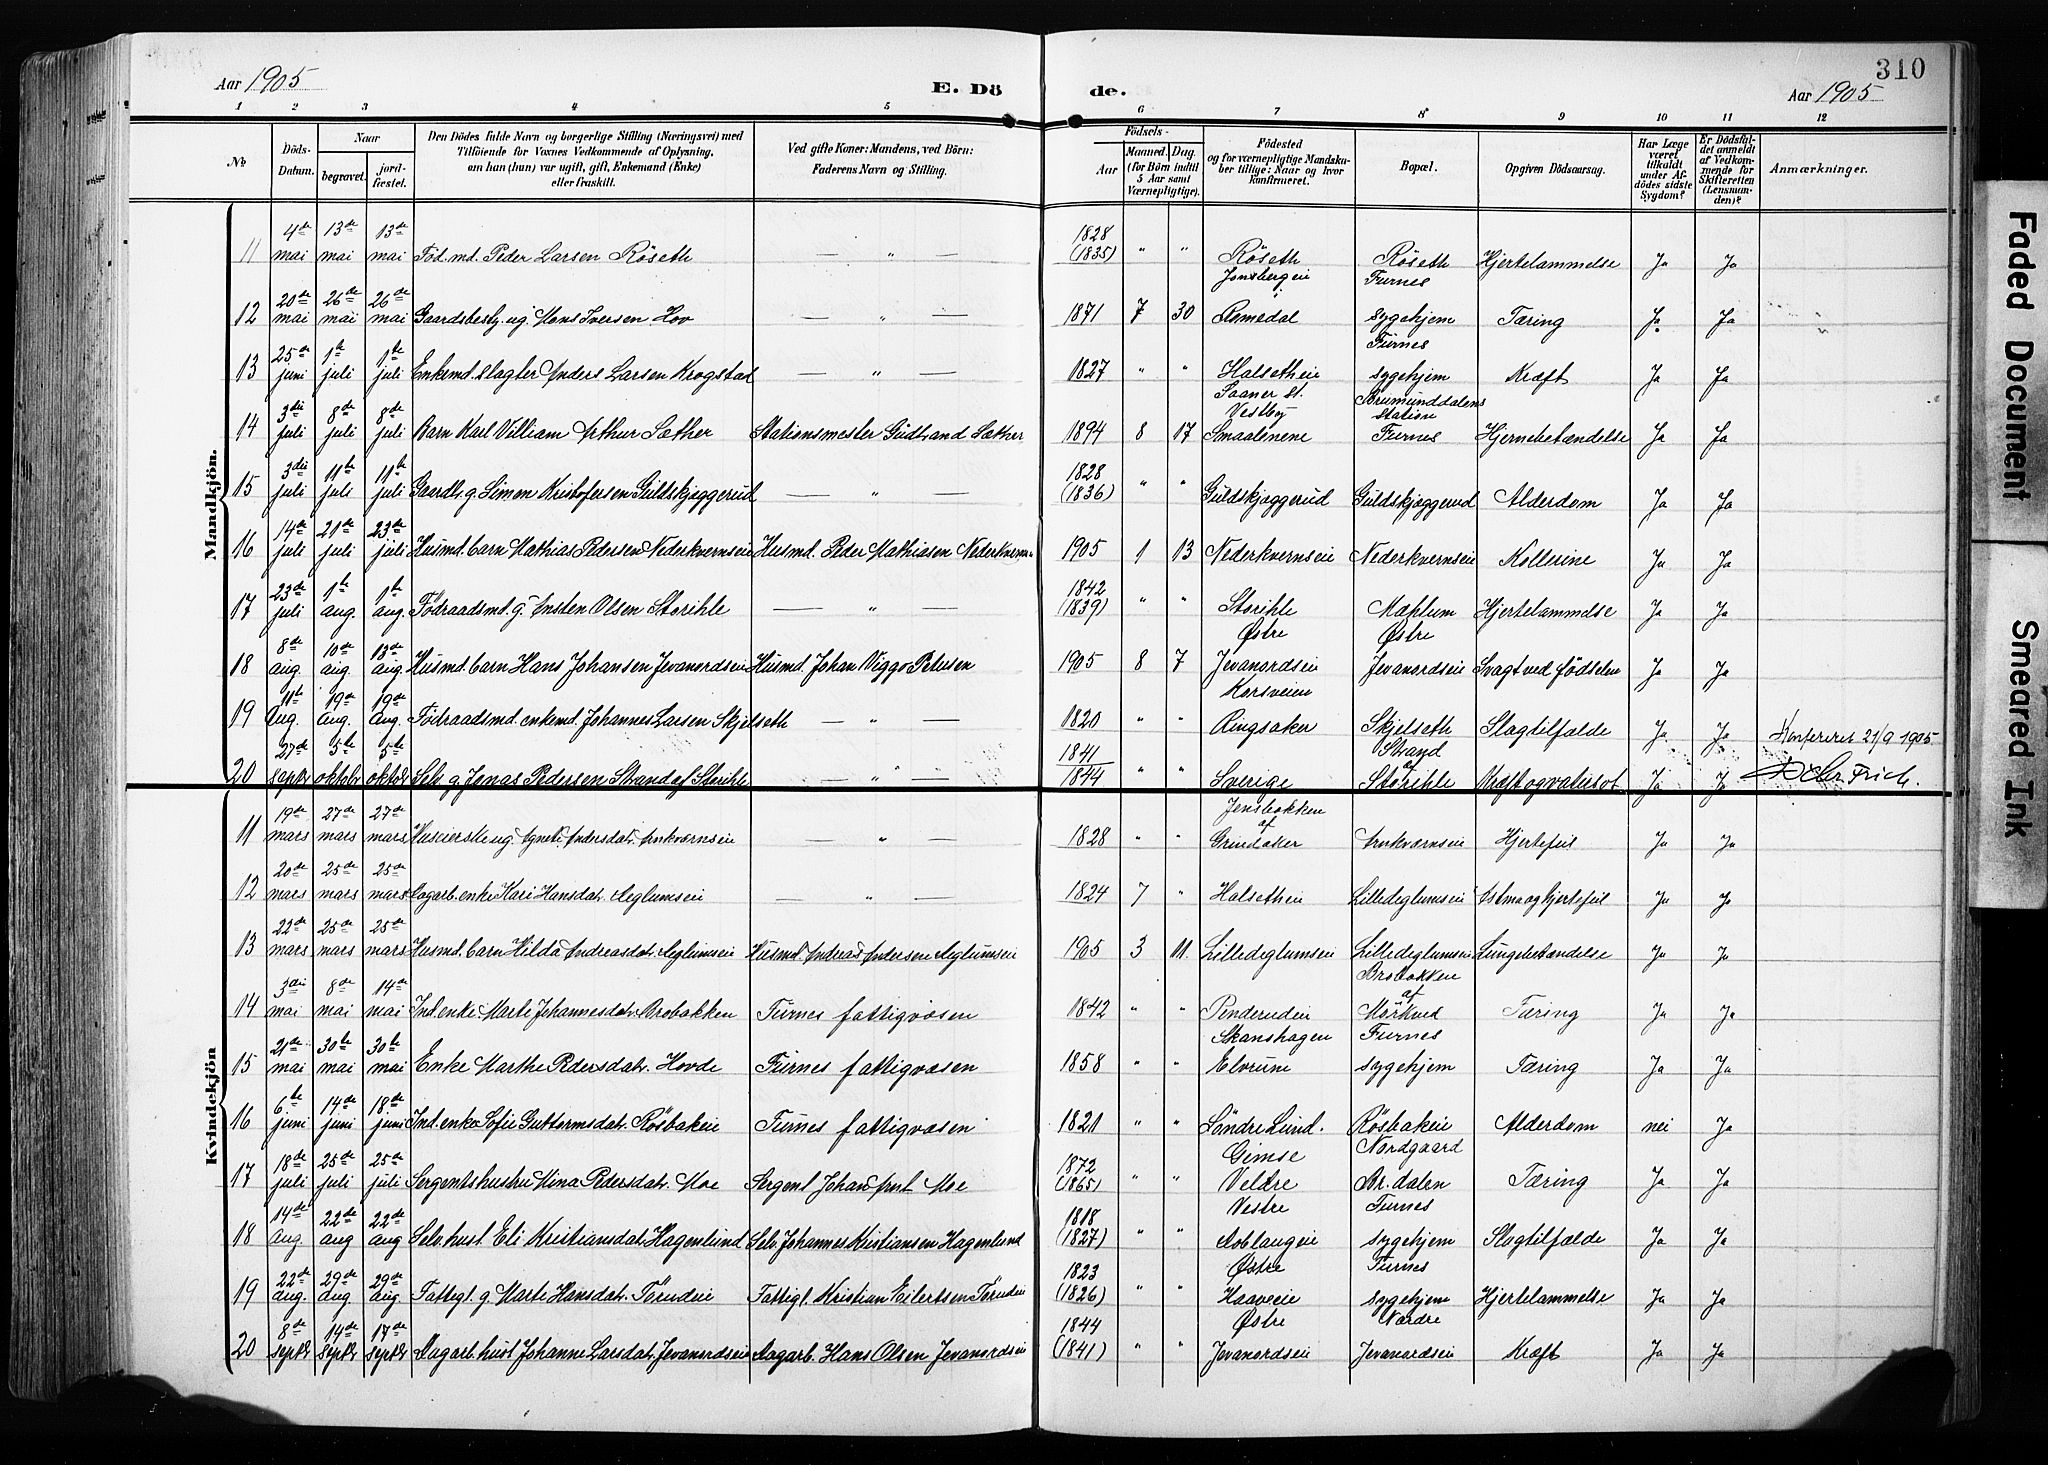 310
Aar 1905
E. Dö
de.
Aar 1905
1 2 3 4 5 6 7 8 9 10 11 12
No
Döds-Datum.
Naar
begravet.
jordfæstet.
Den Dödes fulde Navn og borgerlige Stilling (Næringsvei) med
Tilföiende for Voxnes Vedkommende af Oplysning,
om han (hun) var ugift, gift, Enkemand (Enke)
eller fraskilt.
Ved gifte Koner: Mandens, ved Börn:
Faderens Navn og Stilling.
Födsels-
Aar
Maaned. Dag.
(for Börn indtil
5 Aar samt
Værnepligtige).
Födested
og for værnepligtige Mandska-
ber tillige: Naar og hvor
konfirmeret.
Bopæl.
Opgiven Dödsaarsag.
Har Læge
været
tilkaldt
under Af-
dödes sidste
Sygdom?
Er Dödsfal-
det anmeldt
af Vedkom-
mende for
Skifteretten
(Lensman-
den)?
Anmærkninger.
Mandkjön.
11 4de mai 13de mai 13de mai Föd.md. Peder Larsen Röseth — " — 1828 (1835) " " Röseth Röseth Furnes Hjertelammelse Ja Ja
12 20de mai 26de mai 26de mai Gaardbest. ug. Mons Iversen Hov — " — 1871 7 30 Jonsbergeie i Romedal Furnes sygehjem Tæring Ja Ja
13 25de juni 1te juli 1te juli Enkemd. slagter Anders Larsen Krogstad — " — 1827 " " Halsetheie Furnes sygehjem Kræft Ja Ja
14 3die juli 8de juli 8de juli Barn Karl Villiam Arthur Sæther Stationsmester Gudbrand Sæther 1894 8 17 Saaner St. Vestby Smaalenene Brumunddalens station Furnes Hjernebetændelse Ja Ja
15 3die juli 11te juli 11te juli Gaardb. g. Simen Kristofersen Guldskjæggerud — " — 1828 (1836) " " Guldskjæggerud Guldskjæggerud Alderdom Ja Ja
16 14de juli 21de juli 23de juli Husmd. barn Mathias Pedersen Nederkvernseie Husmd. Peder Mathiasen Nederkvernseie 1905 1 13 Nederkvernseie Nederkvernseie Kollerine Ja Ja
17 23de juli 1te aug. 1te aug. Födraadsmd. g. Ansten Olsen Storihle — " — 1842 (1839) " " Storihle Mæhlum Hjertelammelse Ja Ja
18 8de aug. 10de aug. 13de aug. Husmd. barn Hans Johansen Jevanordseie Husmd. Johan Viggo Petersen 1905 8 7 Østre Jevanordseie Østre Jevanordseie Svagt ved födselen Ja Ja
19 11te aug. 19de aug. 19de aug. Födraadsmd. enkemd. Johannes Larsen Skjelseth — " — 1820 " " Korsveien Ringsaker Skjelseth Slagtilfælde Ja Ja
20 27de septbr 5te oktobr 5te oktobr Selv. g. Jonas Pedersen Strand af Storihle — " — 1841 1844 " " Sverige Strand af Storihle Kræft og vatersot Ja Ja
Konfereret 21/9 1905
Kvindekjön
11 19de mars 27de mars 27de mars Huseierske ug. Agnete Andersdatr. Arnkværnseie — " — 1828 " " Jensbakken af Grindaker Arnkværnseie Hjertefeil Ja Ja
12 20de mars 25de mars 25de mars Dagarb. enke Kari Hansdatr. Deglumseie — " — 1824 7 " Halsetheie Lilledeglumseie Astma og hjertefeil Ja Ja
13 22de mars 25de mars 25de mars Husmd. barn Hilda Andreasdatr. Deglumseie Husmd. Andreas Andersen Deglumseie 1905 3 11. Lilledeglumseie Lilledeglumseie Lungebetændelse Ja Ja
14 3die mai 8de mai 14de mai Ind. enke Marte Johannesdatr. Brobakken Furnes fattigvæsen 1842 " " Penderudeie Brobakken af Mörkved Tæring Ja Ja
15 21de mai 30te mai 30te mai Enke Marthe Pedersdatr. Hovde Furnes fattigvæsen 1858 " " Skanshagen Elverum Furnes sygehjem Tæring Ja Ja
16 6te juni 14de juni 18de juni Ind. enke Sofie Guttormsdatr. Rösbakeie Furnes fattigvæsen 1821 " " Söndre Lund. Rösbakeie Alderdom nei Ja
17 18de juli 25de juli 25de juli Sergentshustru Mina Pedersdatr. Moe Sergent Johan Arnt Moe 1872 (1865) " " Gimse Veldre Nordgaard Br.dalen Tæring Ja Ja
18 14de aug 22de aug 22de aug Selv. hust. Eli Kristiansdatr. Hagenlund Selv. Johannes Kristiansen Hagenlund 1818 (1827) " " Vestre Doblougeie Furnes sygehjem Slagtilfælde Ja Ja
19 22de aug. 29de aug. 29de aug Fattigl. g. Marte Hansdatr. Törudeie Fattigl. Kristian Eilertsen Törudeie 1823 (1826) " " Østre Haaveie Furnes sygehjem Hjertelammelse Ja Ja
20 8de septbr 14de septbr 17de septbr Dagarb. hust. Johanne Larsdatr. Jevanordseie Dagarb. Hans Olsen Jevanordseie 1844 (1841) " " Østre Jevanordseie Nordre Jevanordseie Kræft Ja Ja
Faded Document
Smeared Ink